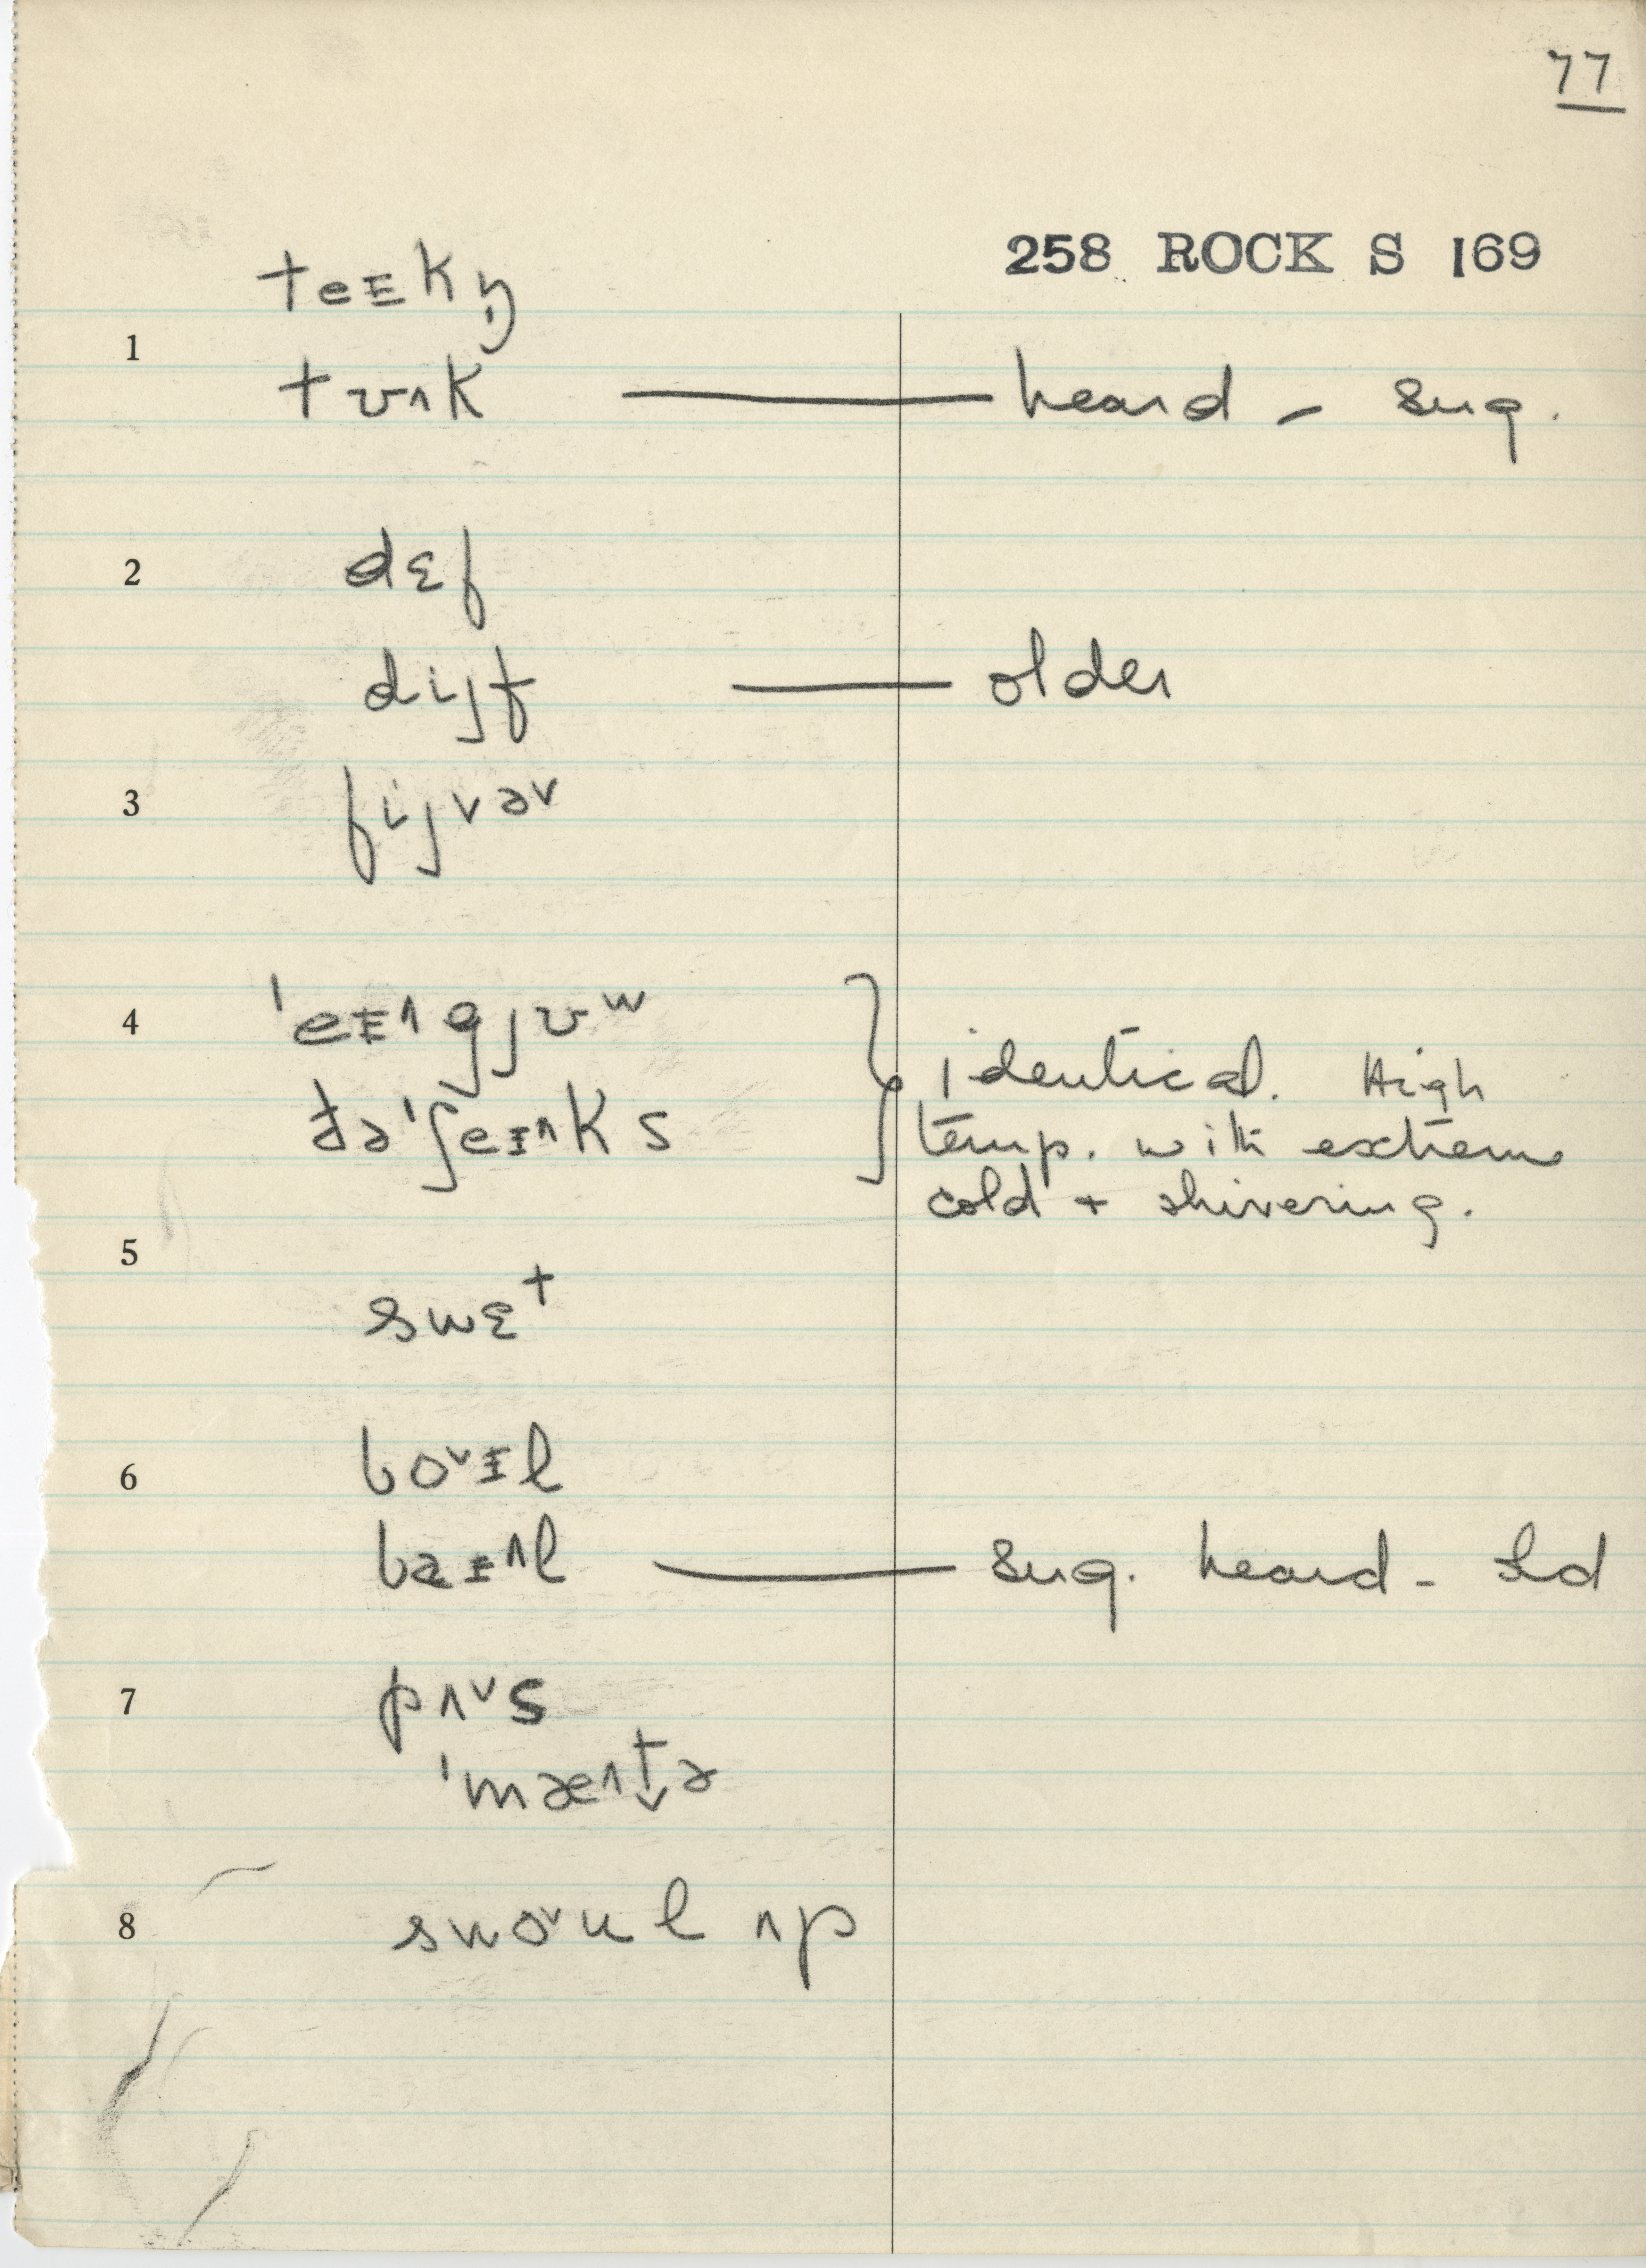 77
258 ROCK S 169
teɪkŋ̩
1 tʊ^k — heard – sug.
2 dɛf
dijf — older
3 fijvəv
4 ˈeɪ^gjʊʷ } identical. High
ðəˈʃeɪ^ks temp. with extreme
cold + shivering.
5
swɛt
6 bo˅ɪl
baɪ^l — sug. heard –
7 pʌ˅s
ˈmæ^t̬ə
8 swo˅ul ʌp